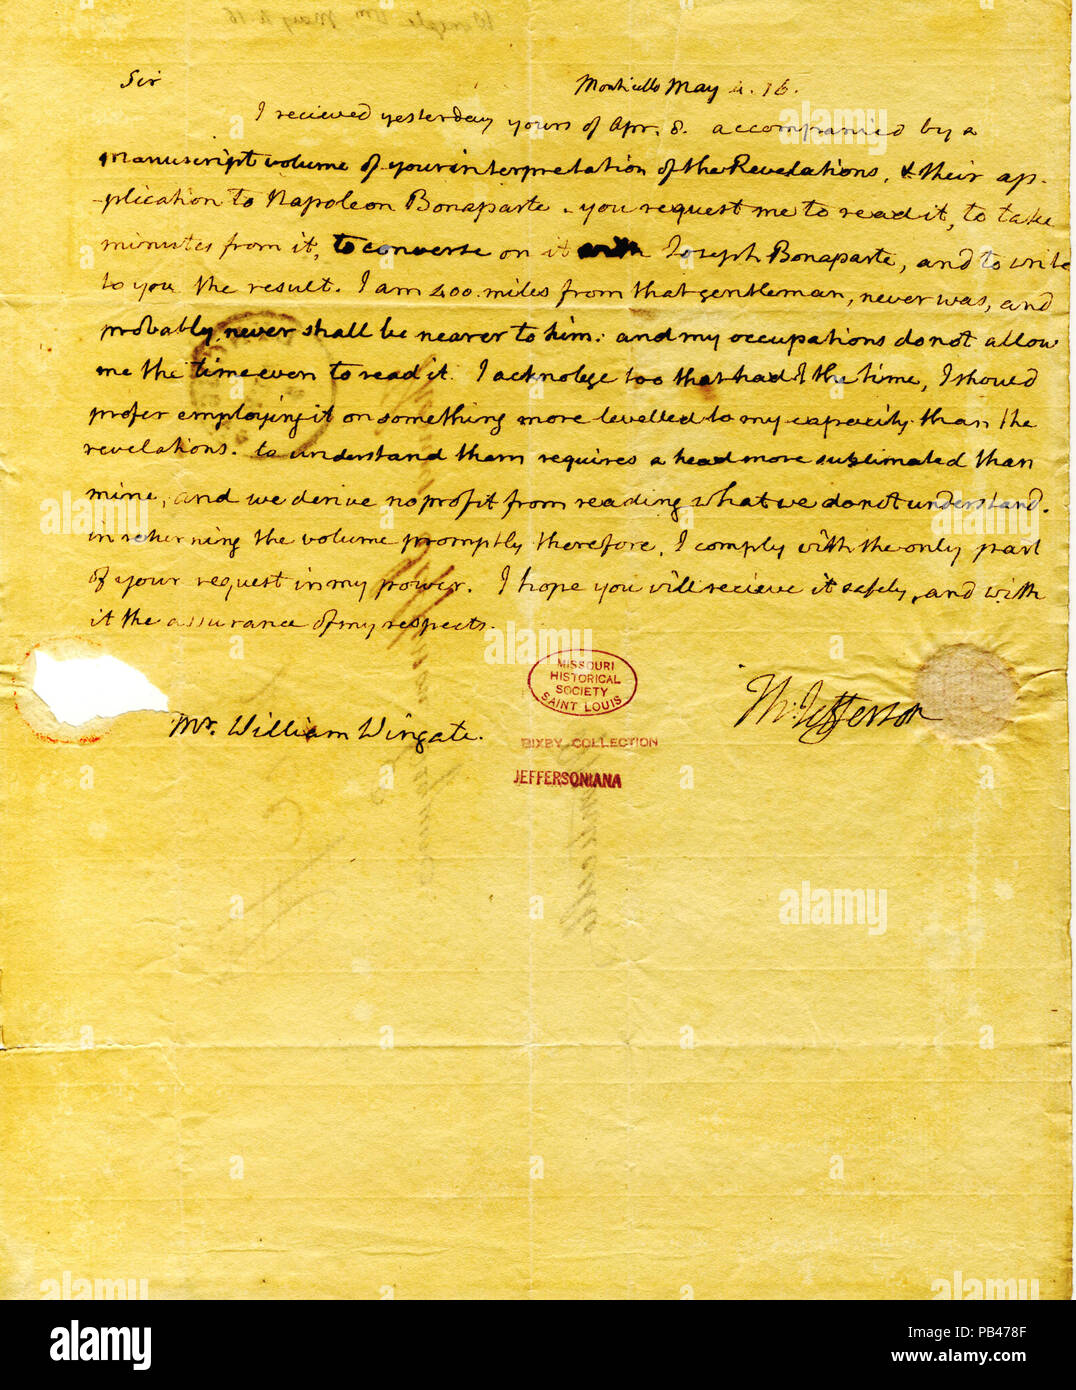 Sir Monticello May 4. 16.
I recieved yesterday yours of Apr. 8. accompanied by a
manuscript volume of your interpretation of the Revelations, & their ap-
-plication to Napoleon Bonaparte. you request me to read it, to take
minutes from it, to converse on it with Joseph Bonaparte, and to write
to you the result. I am 400. miles from that gentleman, never was, and
probably never shall be nearer to him: and my occupations do not allow
me the time even to read it. I acknolege too that had I the time, I should
prefer employing it on something more levelled to my capacity than the
revelations. to understand them requires a head more sublimated than
mine, and we derive no profit from reading what we do not understand.
in returning the volume promptly therefore, I comply with the only part
of your request in my power. I hope you will recieve it safely, and with
it the assurance of my respects.
Th: Jefferson
Mr. William Wingate.
MISSOURI
HISTORICAL
SOCIETY
SAINT LOUIS
BIXBY COLLECTION
JEFFERSONIANA
alamy
alamy
Image ID: PB478F
www.alamy.com